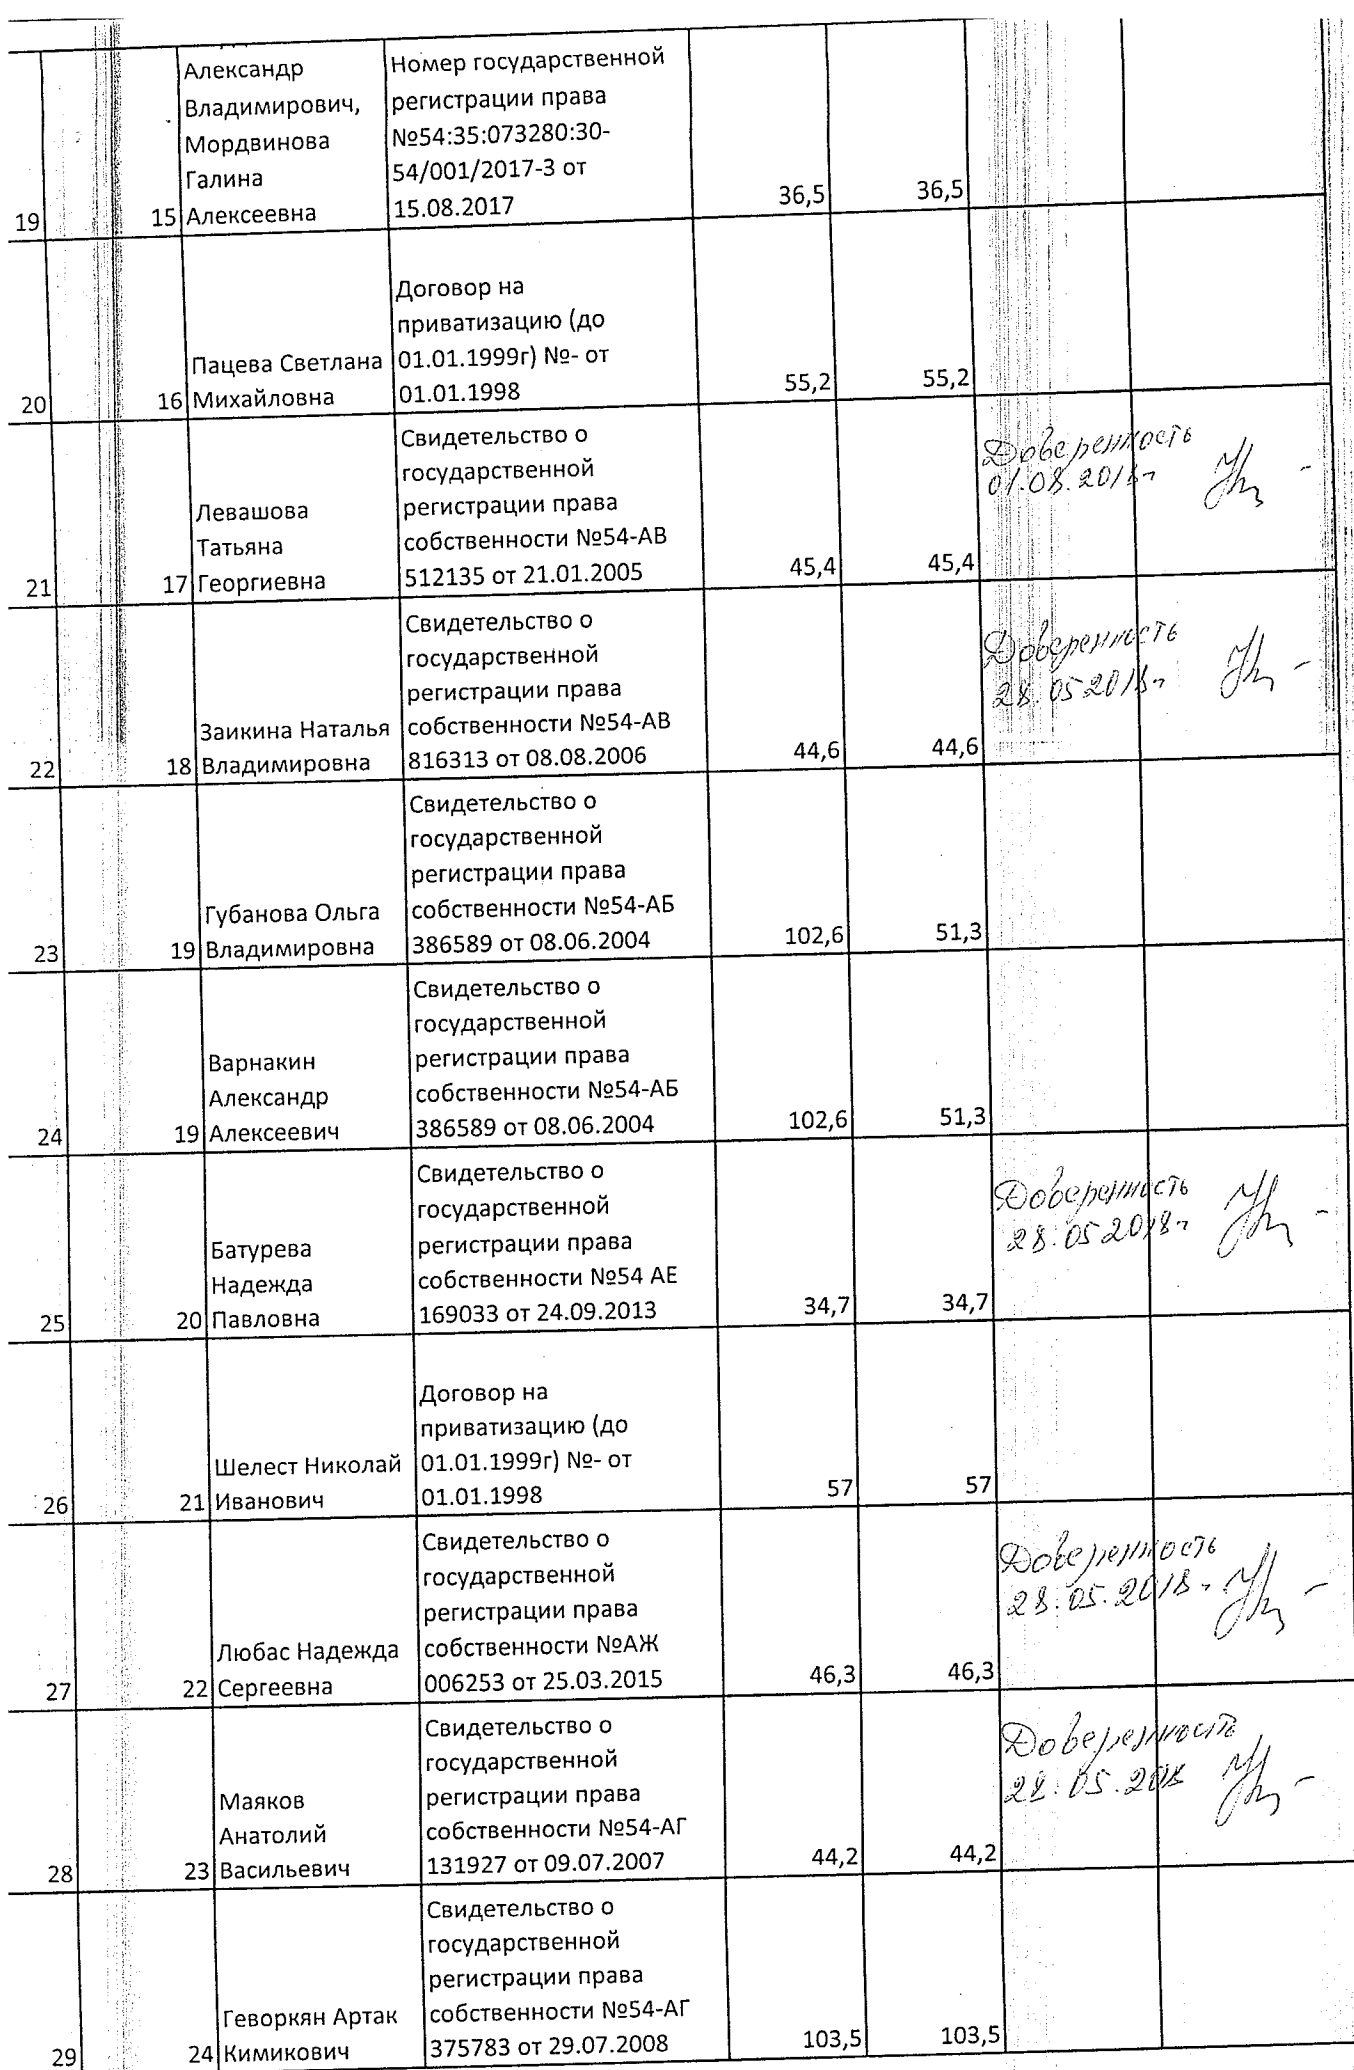 Александр
Владимирович,
Мордвинова
Галина
19 15 Алексеевна
Номер государственной
регистрации права
№54:35:073280:30-
54/001/2017-3 от
15.08.2017
36,5 36,5
20 16
Пацева Светлана
Михайловна
Договор на
приватизацию (до
01.01.1999г) №- от
01.01.1998
55,2 55,2
21 17
Левашова
Татьяна
Георгиевна
Свидетельство о
государственной
регистрации права
собственности №54-АВ
512135 от 21.01.2005
45,4 45,4
Доверенность
01.08.2018г
22 18
Заикина Наталья
Владимировна
Свидетельство о
государственной
регистрации права
собственности №54-АВ
816313 от 08.08.2006
44,6 44,6
Доверенность
28.05.2018г
23 19
Губанова Ольга
Владимировна
Свидетельство о
государственной
регистрации права
собственности №54-АБ
386589 от 08.06.2004
102,6 51,3
24 19
Варнакин
Александр
Алексеевич
Свидетельство о
государственной
регистрации права
собственности №54-АБ
386589 от 08.06.2004
102,6 51,3
25 20
Батурева
Надежда
Павловна
Свидетельство о
государственной
регистрации права
собственности №54 АЕ
169033 от 24.09.2013
34,7 34,7
Доверенность
28.05.2018г
26 21
Шелест Николай
Иванович
Договор на
приватизацию (до
01.01.1999г) №- от
01.01.1998
57 57
27 22
Любас Надежда
Сергеевна
Свидетельство о
государственной
регистрации права
собственности №АЖ
006253 от 25.03.2015
46,3 46,3
Доверенность
28.05.2018г
28 23
Маяков
Анатолий
Васильевич
Свидетельство о
государственной
регистрации права
собственности №54-АГ
131927 от 09.07.2007
44,2 44,2
Доверенность
28.05.2018
29 24
Геворкян Артак
Кимикович
Свидетельство о
государственной
регистрации права
собственности №54-АГ
375783 от 29.07.2008
103,5 103,5